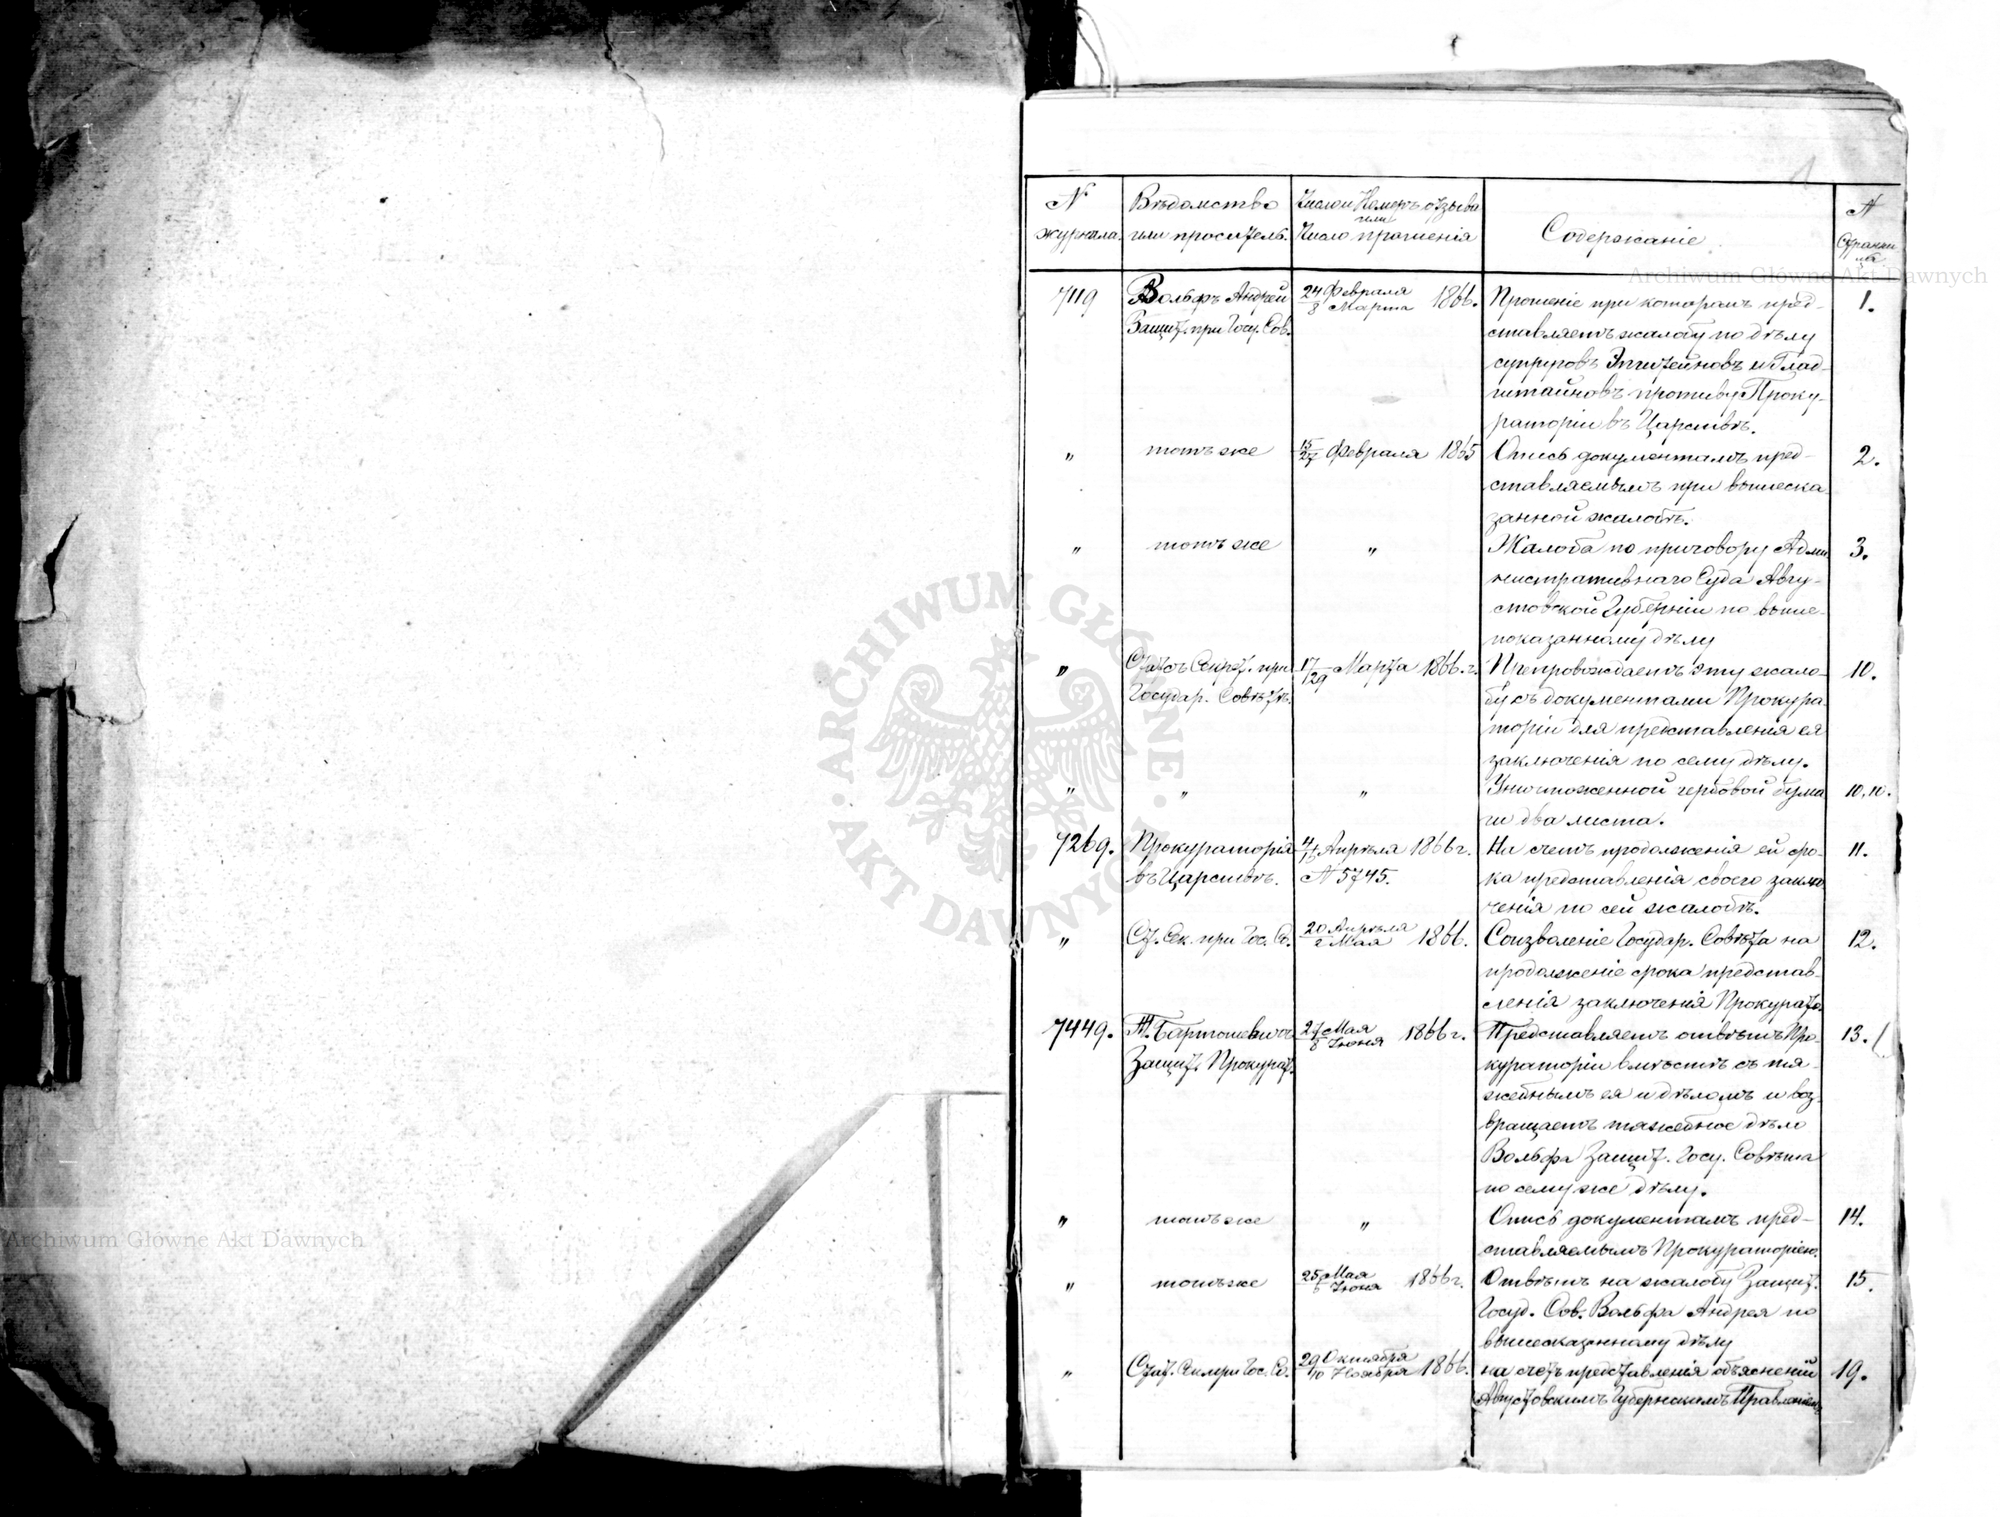 1
N журнала. Вѣдомство или проситель. Число и Номеръ отзыва или Число прошенія Содержаніе N страницъ
7119 Вольфъ Андрей 24 Февраля / 8 Марта 1866. Прошеніе при которомъ пред- 1.
Защит. при Госу. Сов. ставляетъ жалобу по дѣлу
супруговъ Эпштейновъ и Глад-
штайновъ противу Проку-
раторіи въ Царствѣ.
" тотъ же 15/27 Февраля 1865 Опись документамъ пред- 2.
ставляемымъ при вышеска-
занной жалобѣ.
" тотъ же " Жалоба по приговору Адми- 3.
нистративнаго Суда Авгу-
стовской Губерніи по выше-
показанному дѣлу
" Статсъ Секрет. при 17/29 Марта 1866. г. Препровождаетъ эту жало- 10.
Государ. Совѣтѣ. бу съ документами Прокура-
торіи для представленія ея
заключенія по сему дѣлу.
" " " Уничтоженной гербовой бума- 10, 10.
ги два листа.
7269. Прокураторія 4/16 Апрѣля 1866 г. На счетъ продолженія ей сро- 11.
въ Царствѣ. N 5745. ка представленія своего заклю-
ченія по сей жалобѣ.
" Ст. Сек. при Гос. Со. 20 Апрѣля / 2 Мая 1866. Соизволеніе Государ. Совѣта на 12.
продолженіе срока представ-
ленія заключенія Прокурато.
7449. Бартошевичъ 27 Мая / 8 Іюня 1866 г. Представляетъ отвѣтъ Про- 13.
Защит. Прокурат. кураторіи вмѣстѣ съ тя-
жебнымъ ея и дѣломъ и воз-
вращаетъ тяжебное дѣло
Вольфа Защит. Госу. Совѣта
по сему же дѣлу.
" тотъ же " Опись документамъ пред- 14.
ставляемымъ Прокураторіею.
" тотъ же 25 Мая / 6 Іюня 1866 г. Отвѣтъ на жалобу Защит. 15.
Госуд. Сов. Вольфа Андрея по
вышесказанному дѣлу
" Стат. Сек. при Гос. Со. 29 Октября / 10 Ноября 1866. на счетъ представленія объясненій 19.
Августовскимъ Губернскимъ Правленіемъ
ARCHIWUM GŁÓWNE AKT DAWNYCH
Archiwum Główne Akt Dawnych
Archiwum Główne Akt Dawnych